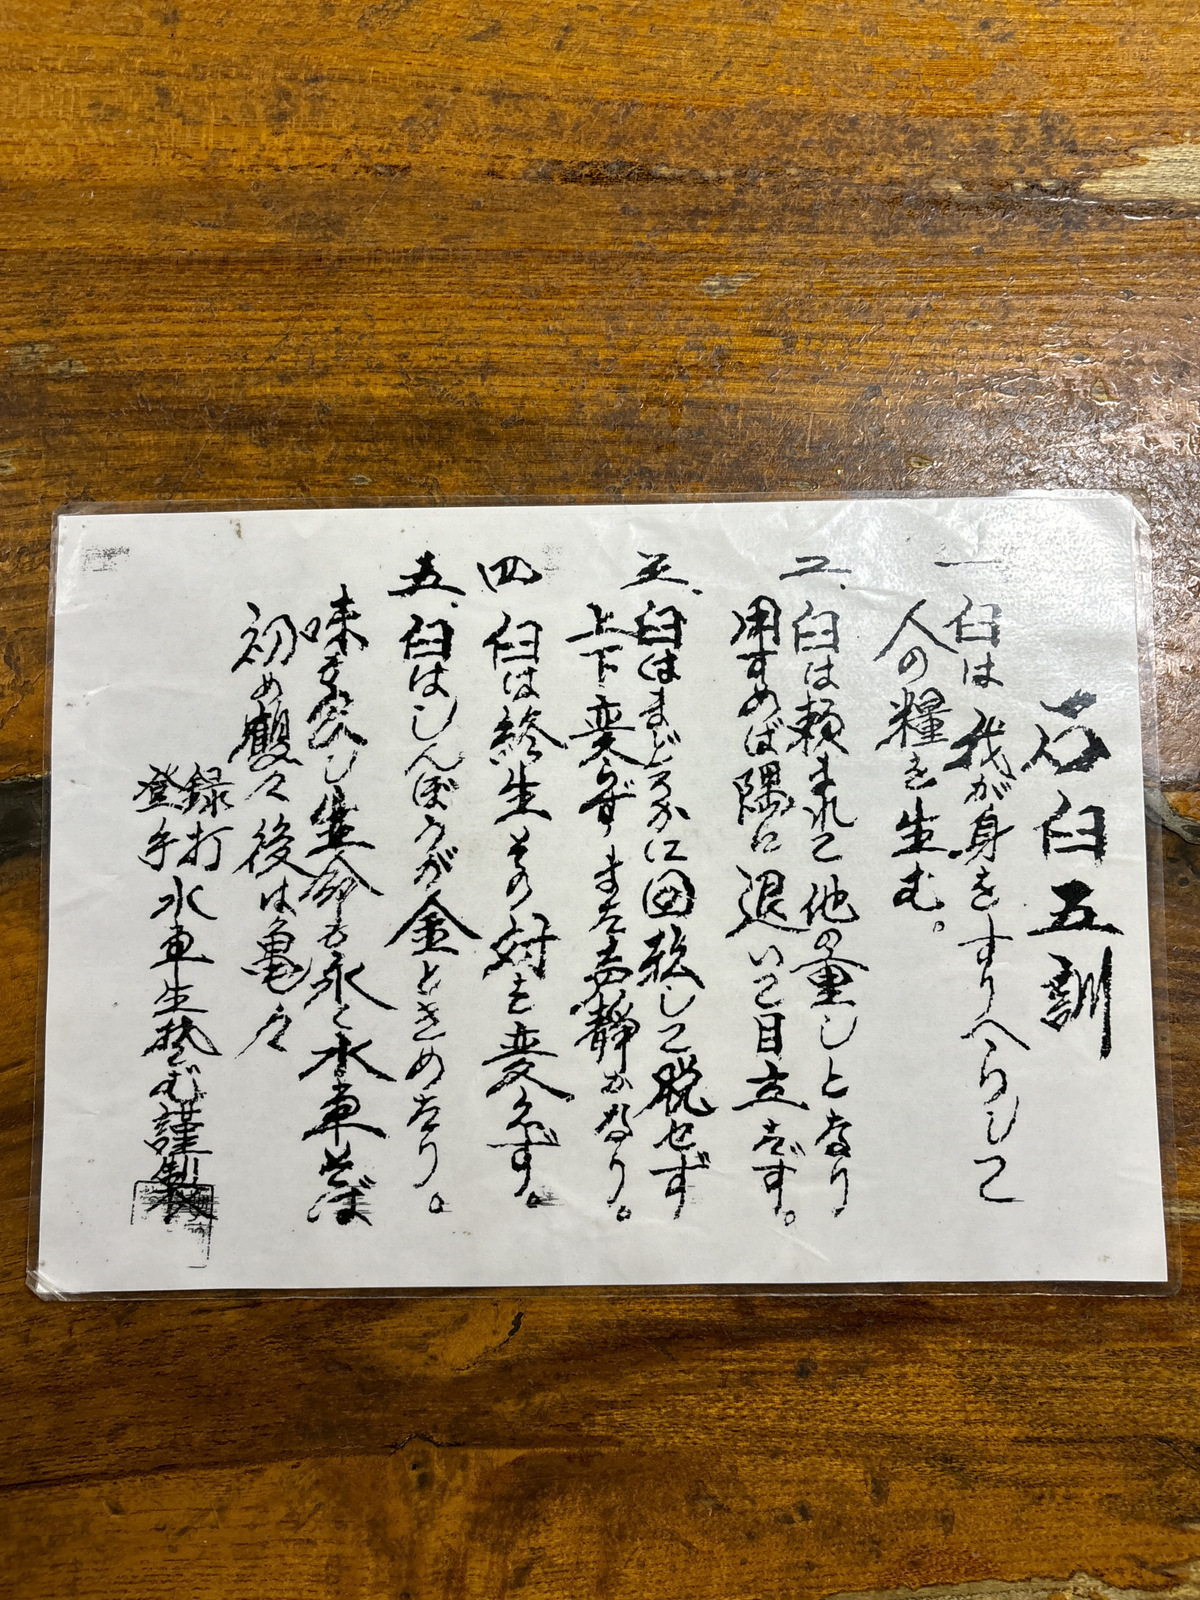 石臼五訓
一 臼は我が身をすりへらして
人の糧を生む。
二、臼は頼まれて他の重しとなり
用すめば隅に退いて目立たず。
三、臼はまどろかに回転して脱せず
上下変らずまた声静かなり。
四 臼は終生その対を変えず。
五、臼はしんぼうが金ときめたり。
味も久しく生命も永く水車そば
初め鶴々後は亀々
登録
手打
水車生そば謹製